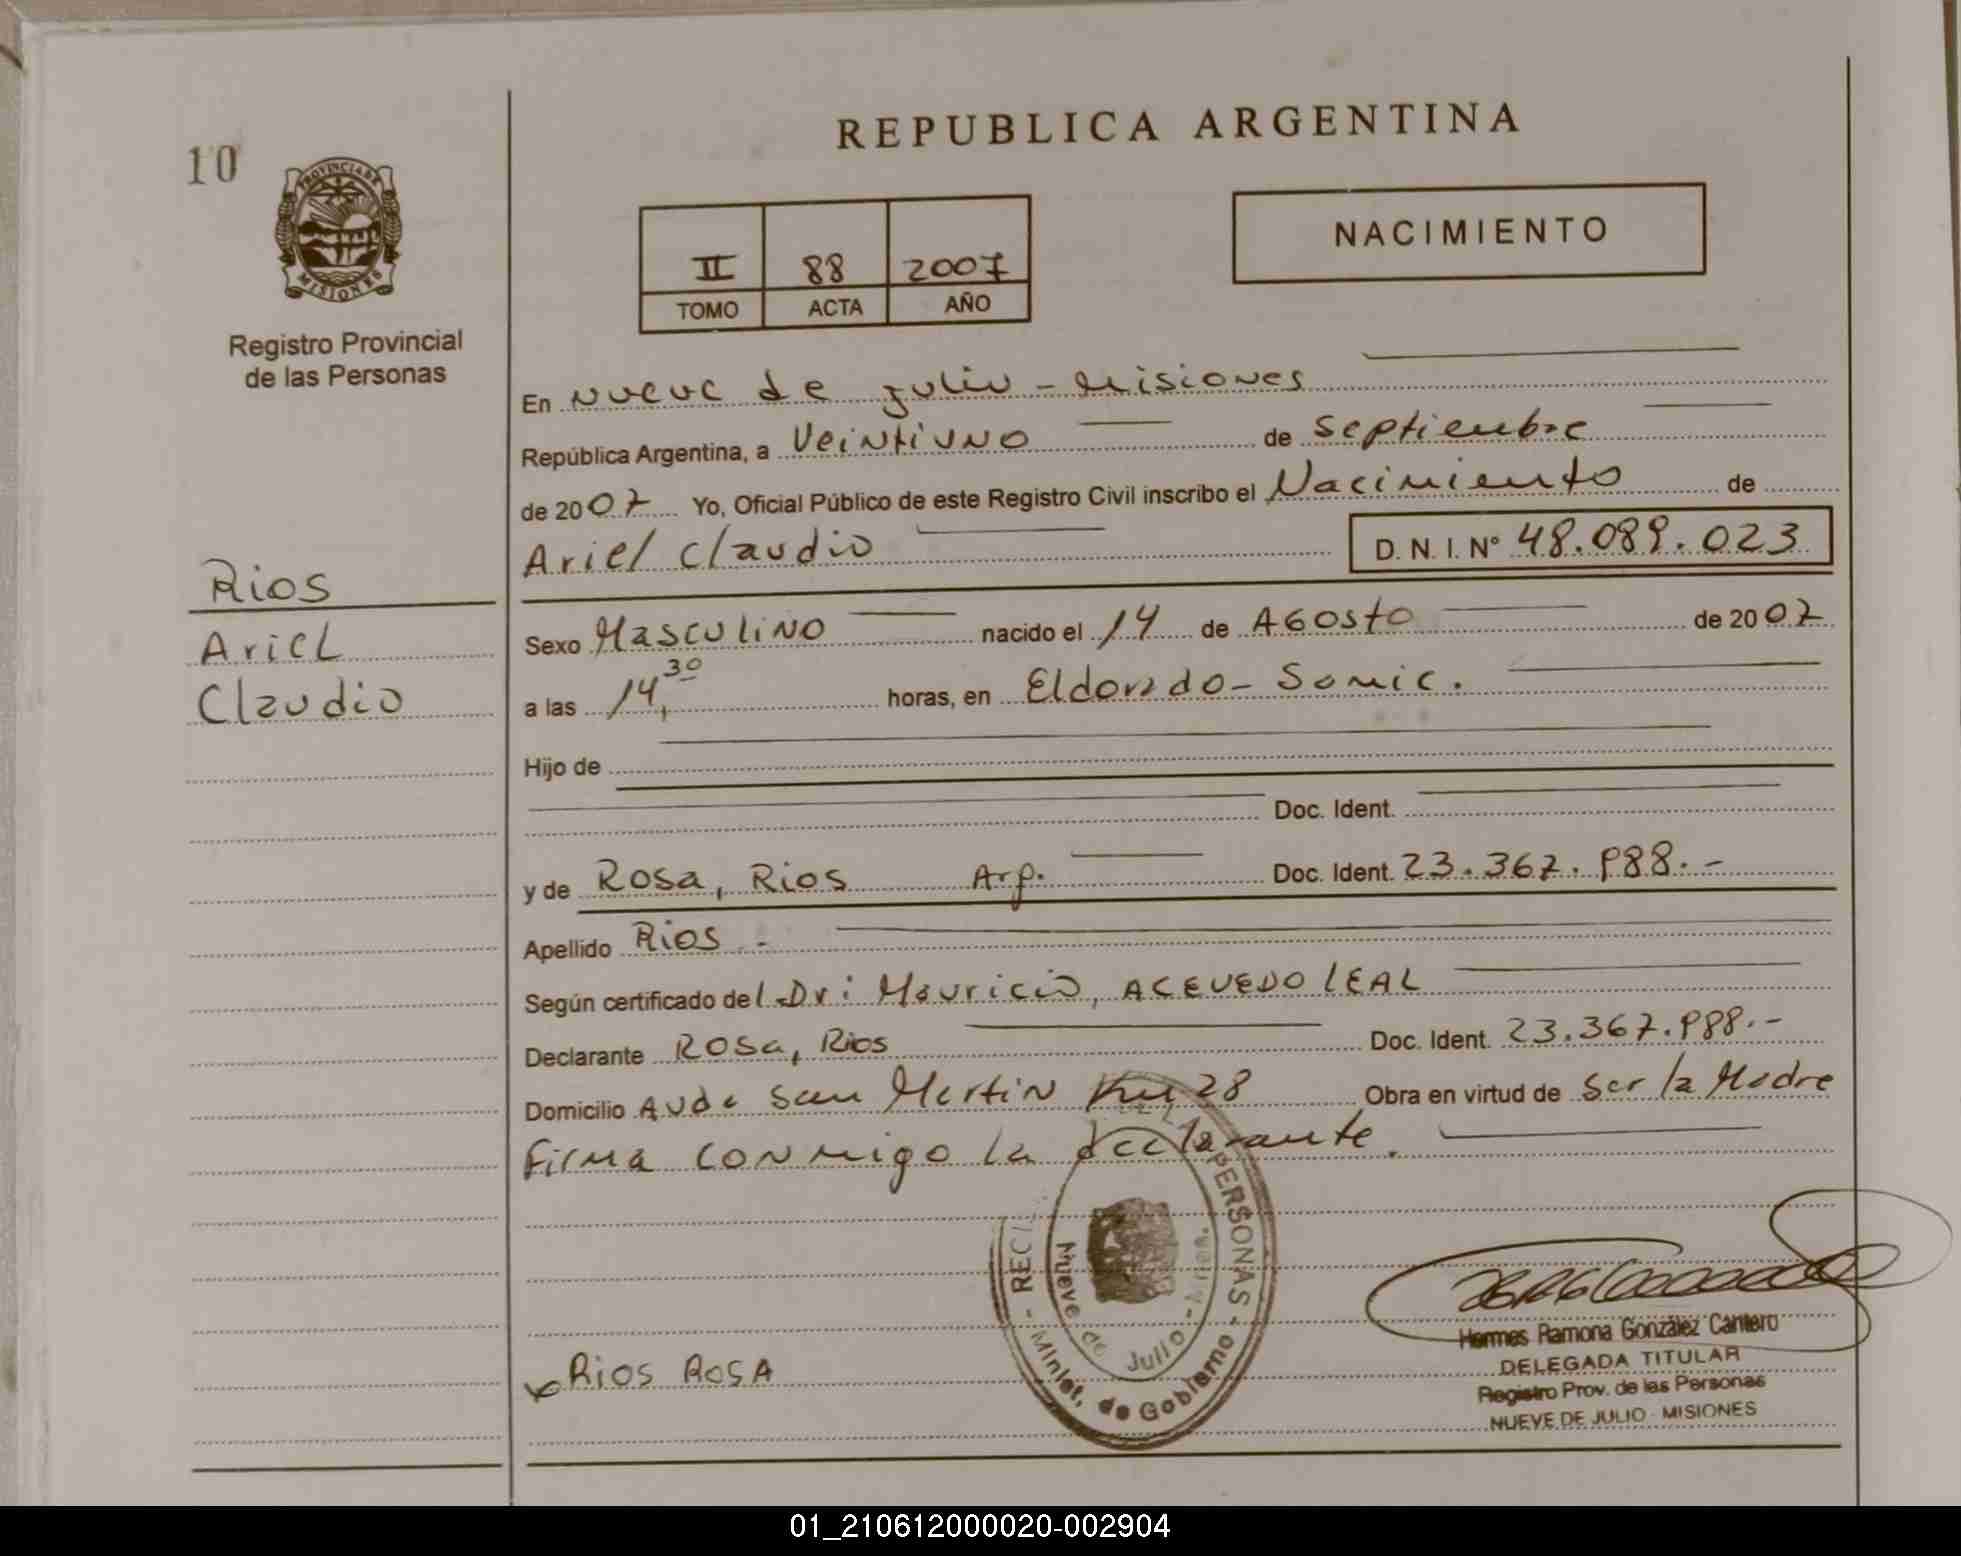 10
PROVINCIA DE
MISIONES
Registro Provincial
de las Personas
Rios
Ariel
Claudio
REPUBLICA ARGENTINA
II 88 2007
TOMO ACTA AÑO
NACIMIENTO
En Nueve de Julio - Misiones
República Argentina, a Veintiuno de Septiembre
de 2007 Yo, Oficial Público de este Registro Civil inscribo el Nacimiento de
Ariel Claudio D. N. I. Nº 48.089.023
Sexo Masculino nacido el 14 de Agosto de 2007
a las 14,30 horas, en Eldorado - Somic.
Hijo de
Doc. Ident.
y de Rosa, Rios Arg. Doc. Ident. 23.367.988.-
Apellido Rios.-
Según certificado del Dr: Mauricio, ACEVEDO LEAL
Declarante Rosa, Rios Doc. Ident. 23.367.988.-
Domicilio Avda San Martin Km 28 Obra en virtud de Ser la Madre
Firma conmigo la declarante.
PERSONAS - Minist. de Gobierno -
Nueve de Julio - Mnes.
Rios Rosa
Hermes Ramona González Cantero
DELEGADA TITULAR
Registro Prov. de las Personas
NUEVE DE JULIO - MISIONES
01_210612000020-002904